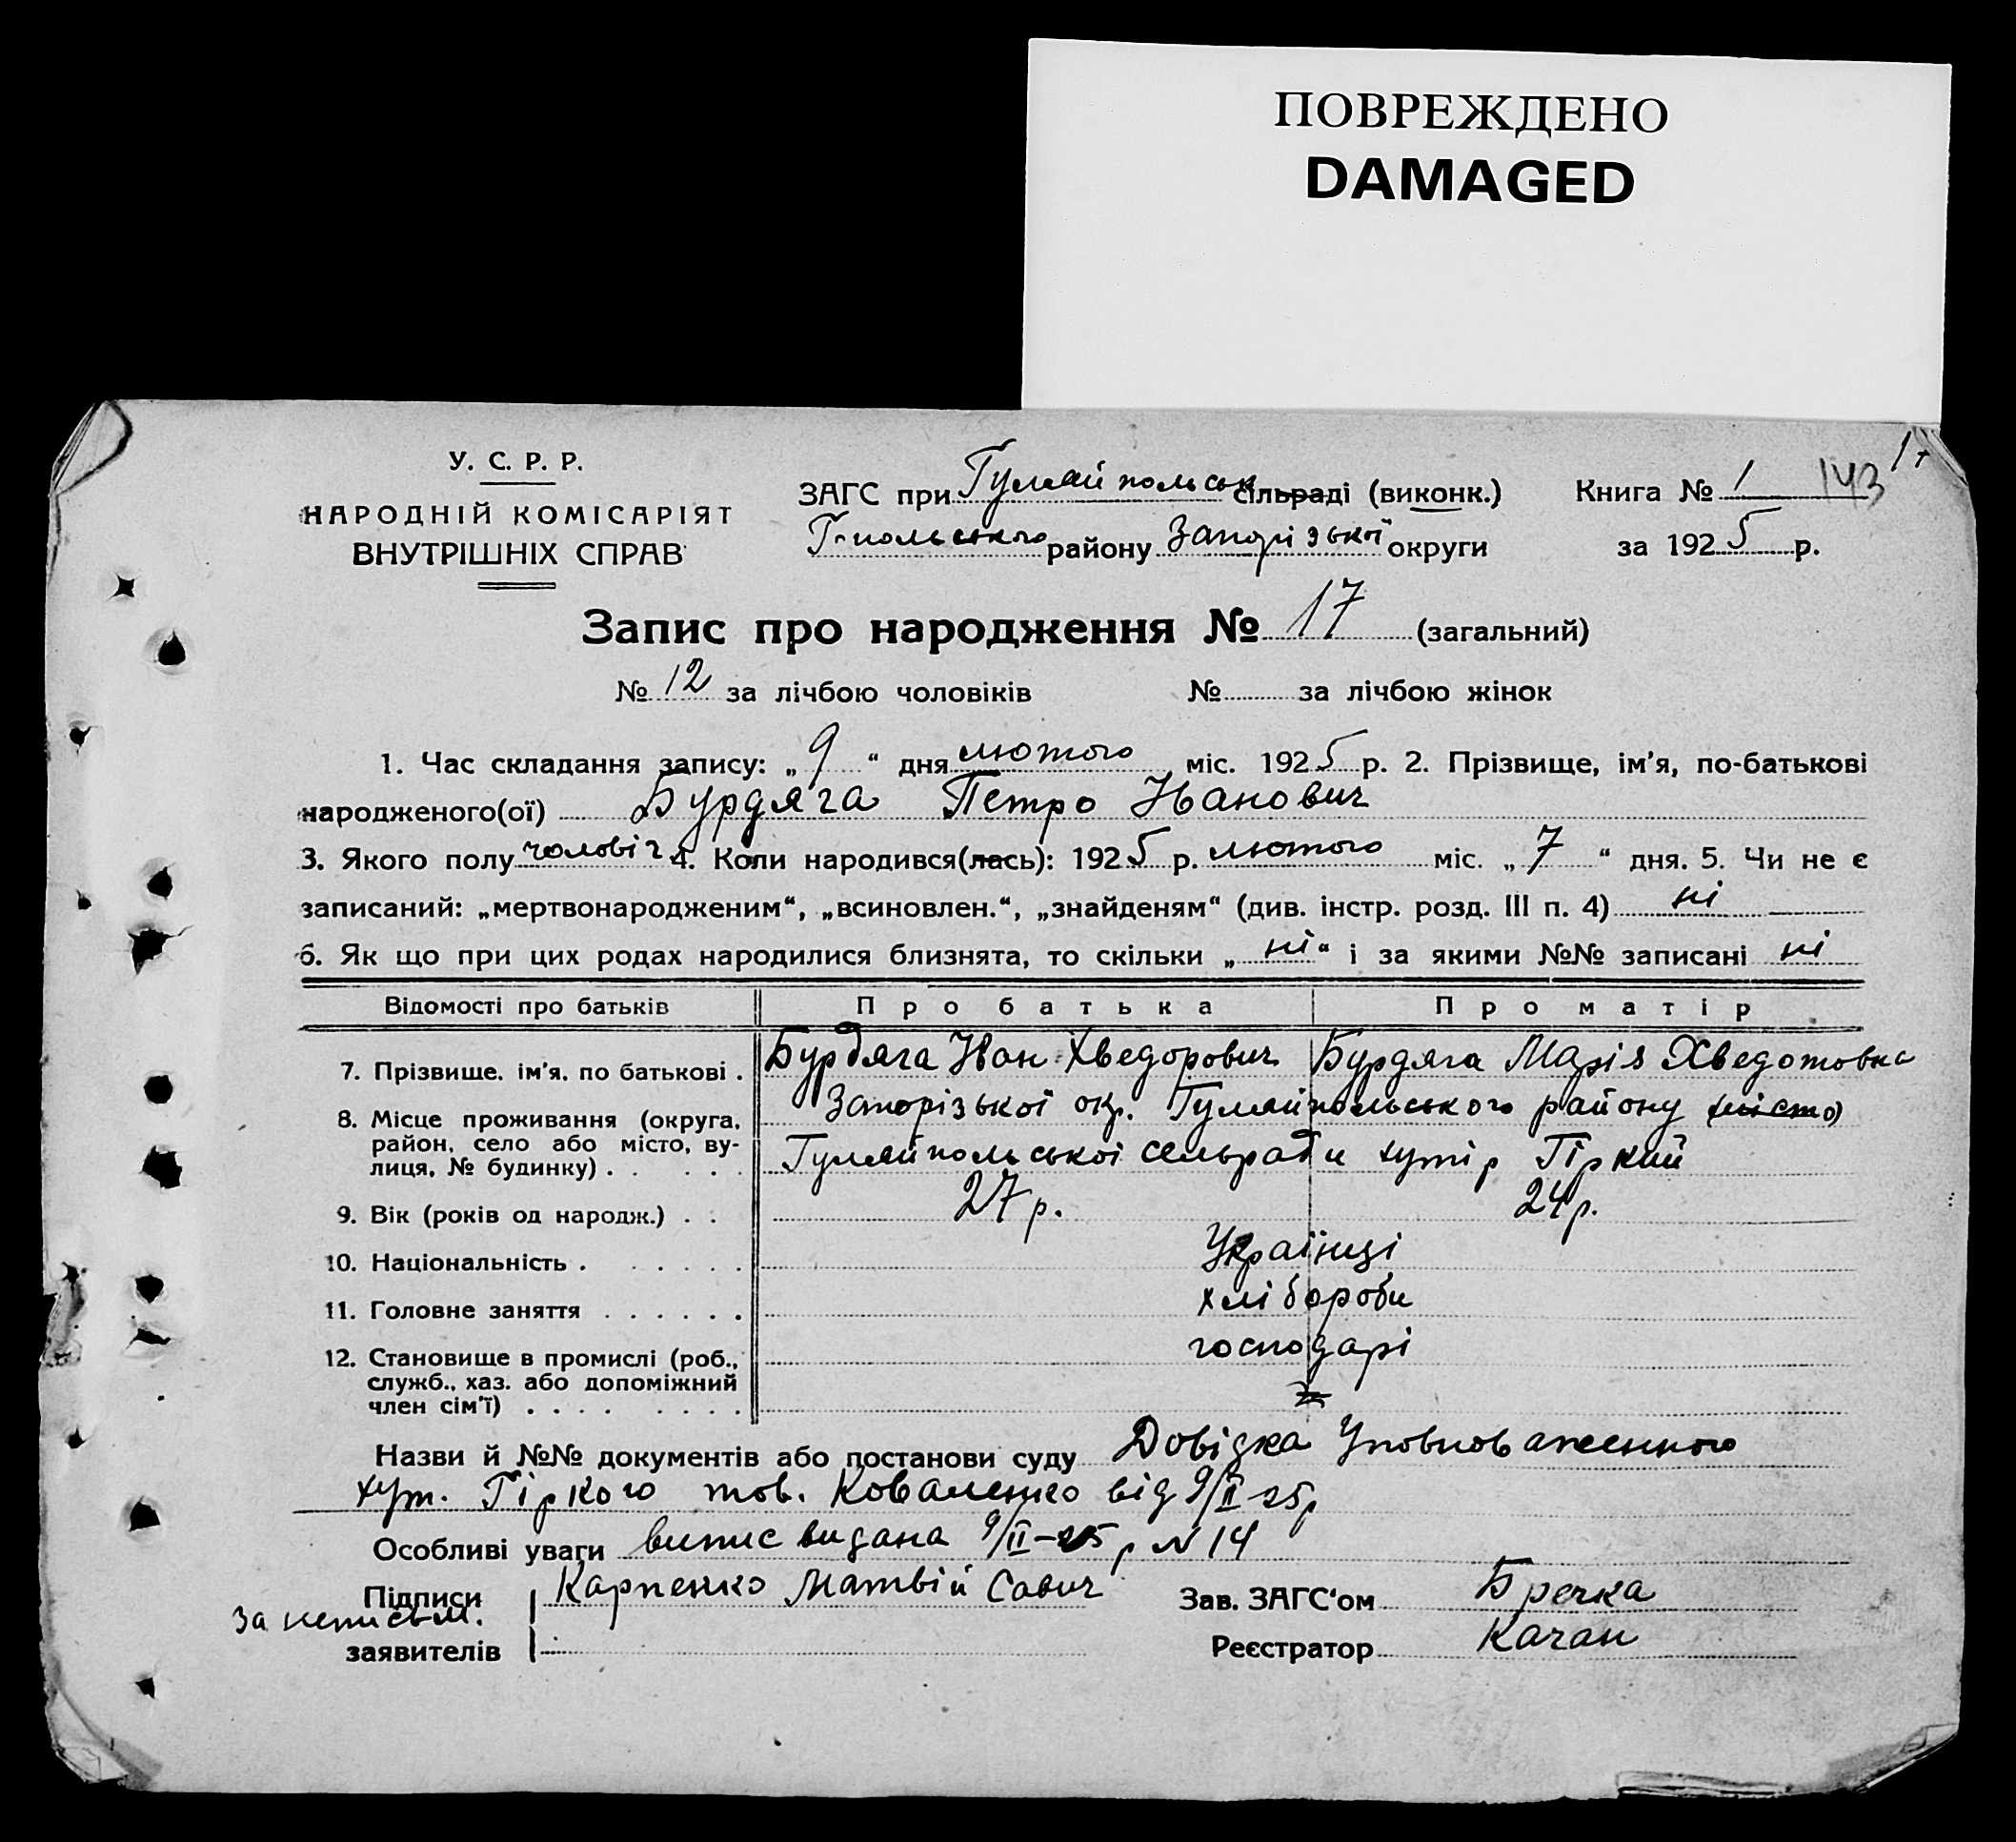 ПОВРЕЖДЕНО
DAMAGED
1т
У. С. Р. Р.
НАРОДНІЙ КОМІСАРІЯТ
ВНУТРІШНІХ СПРАВ
ЗАГС при Гуляйпольськ сільраді (виконк.) Книга № 1 143
Г-польського району Запорізької округи за 1925 р.
Запис про народження № 17 (загальний)
№ 12 за лічбою чоловіків № за лічбою жінок
1. Час складання запису: „9“ дня лютого міс. 1925 р. 2. Прізвище, ім'я, по-батькові
народженого(ої) Бурдяга Петро Іванович
3. Якого полу чоловіч 4. Коли народився(лась): 1925 р. лютого міс. „7“ дня. 5. Чи не є
записаний: „мертвонародженим“, „всиновлен.“, „знайденям“ (див. інстр. розд. III п. 4) ні
6. Як що при цих родах народилися близнята, то скільки „ні“ і за якими №№ записані ні
Відомості про батьків Про батька Про матір
7. Прізвище, ім'я, по батькові . Бурдяга Іван Хведорович Бурдяга Марія Хведотовна
8. Місце проживання (округа, Запорізької окр. Гуляйпольського району (місто)
район, село або місто, ву-
лиця, № будинку) . . . . . Гуляйпольської сельради хутір Гіркий
9. Вік (років од народж.) . . 27 р. 24 р.
10. Національність . . . . . . Українці
11. Головне заняття . . . . . . хлібороби
12. Становище в промислі (роб., господарі
служб., хаз. або допоміжний
член сім'ї) . . . . . . . .
Назви й №№ документів або постанови суду Довідка Уповноваженного
хут. Гіркого тов. Коваленко від 9/II-25р
Особливі уваги випис видана 9/II-25 р N 14
Підписи Карпенко Матвій Савич Зав. ЗАГС'ом Бречка
За неписьм.
заявителів Реєстратор Качан